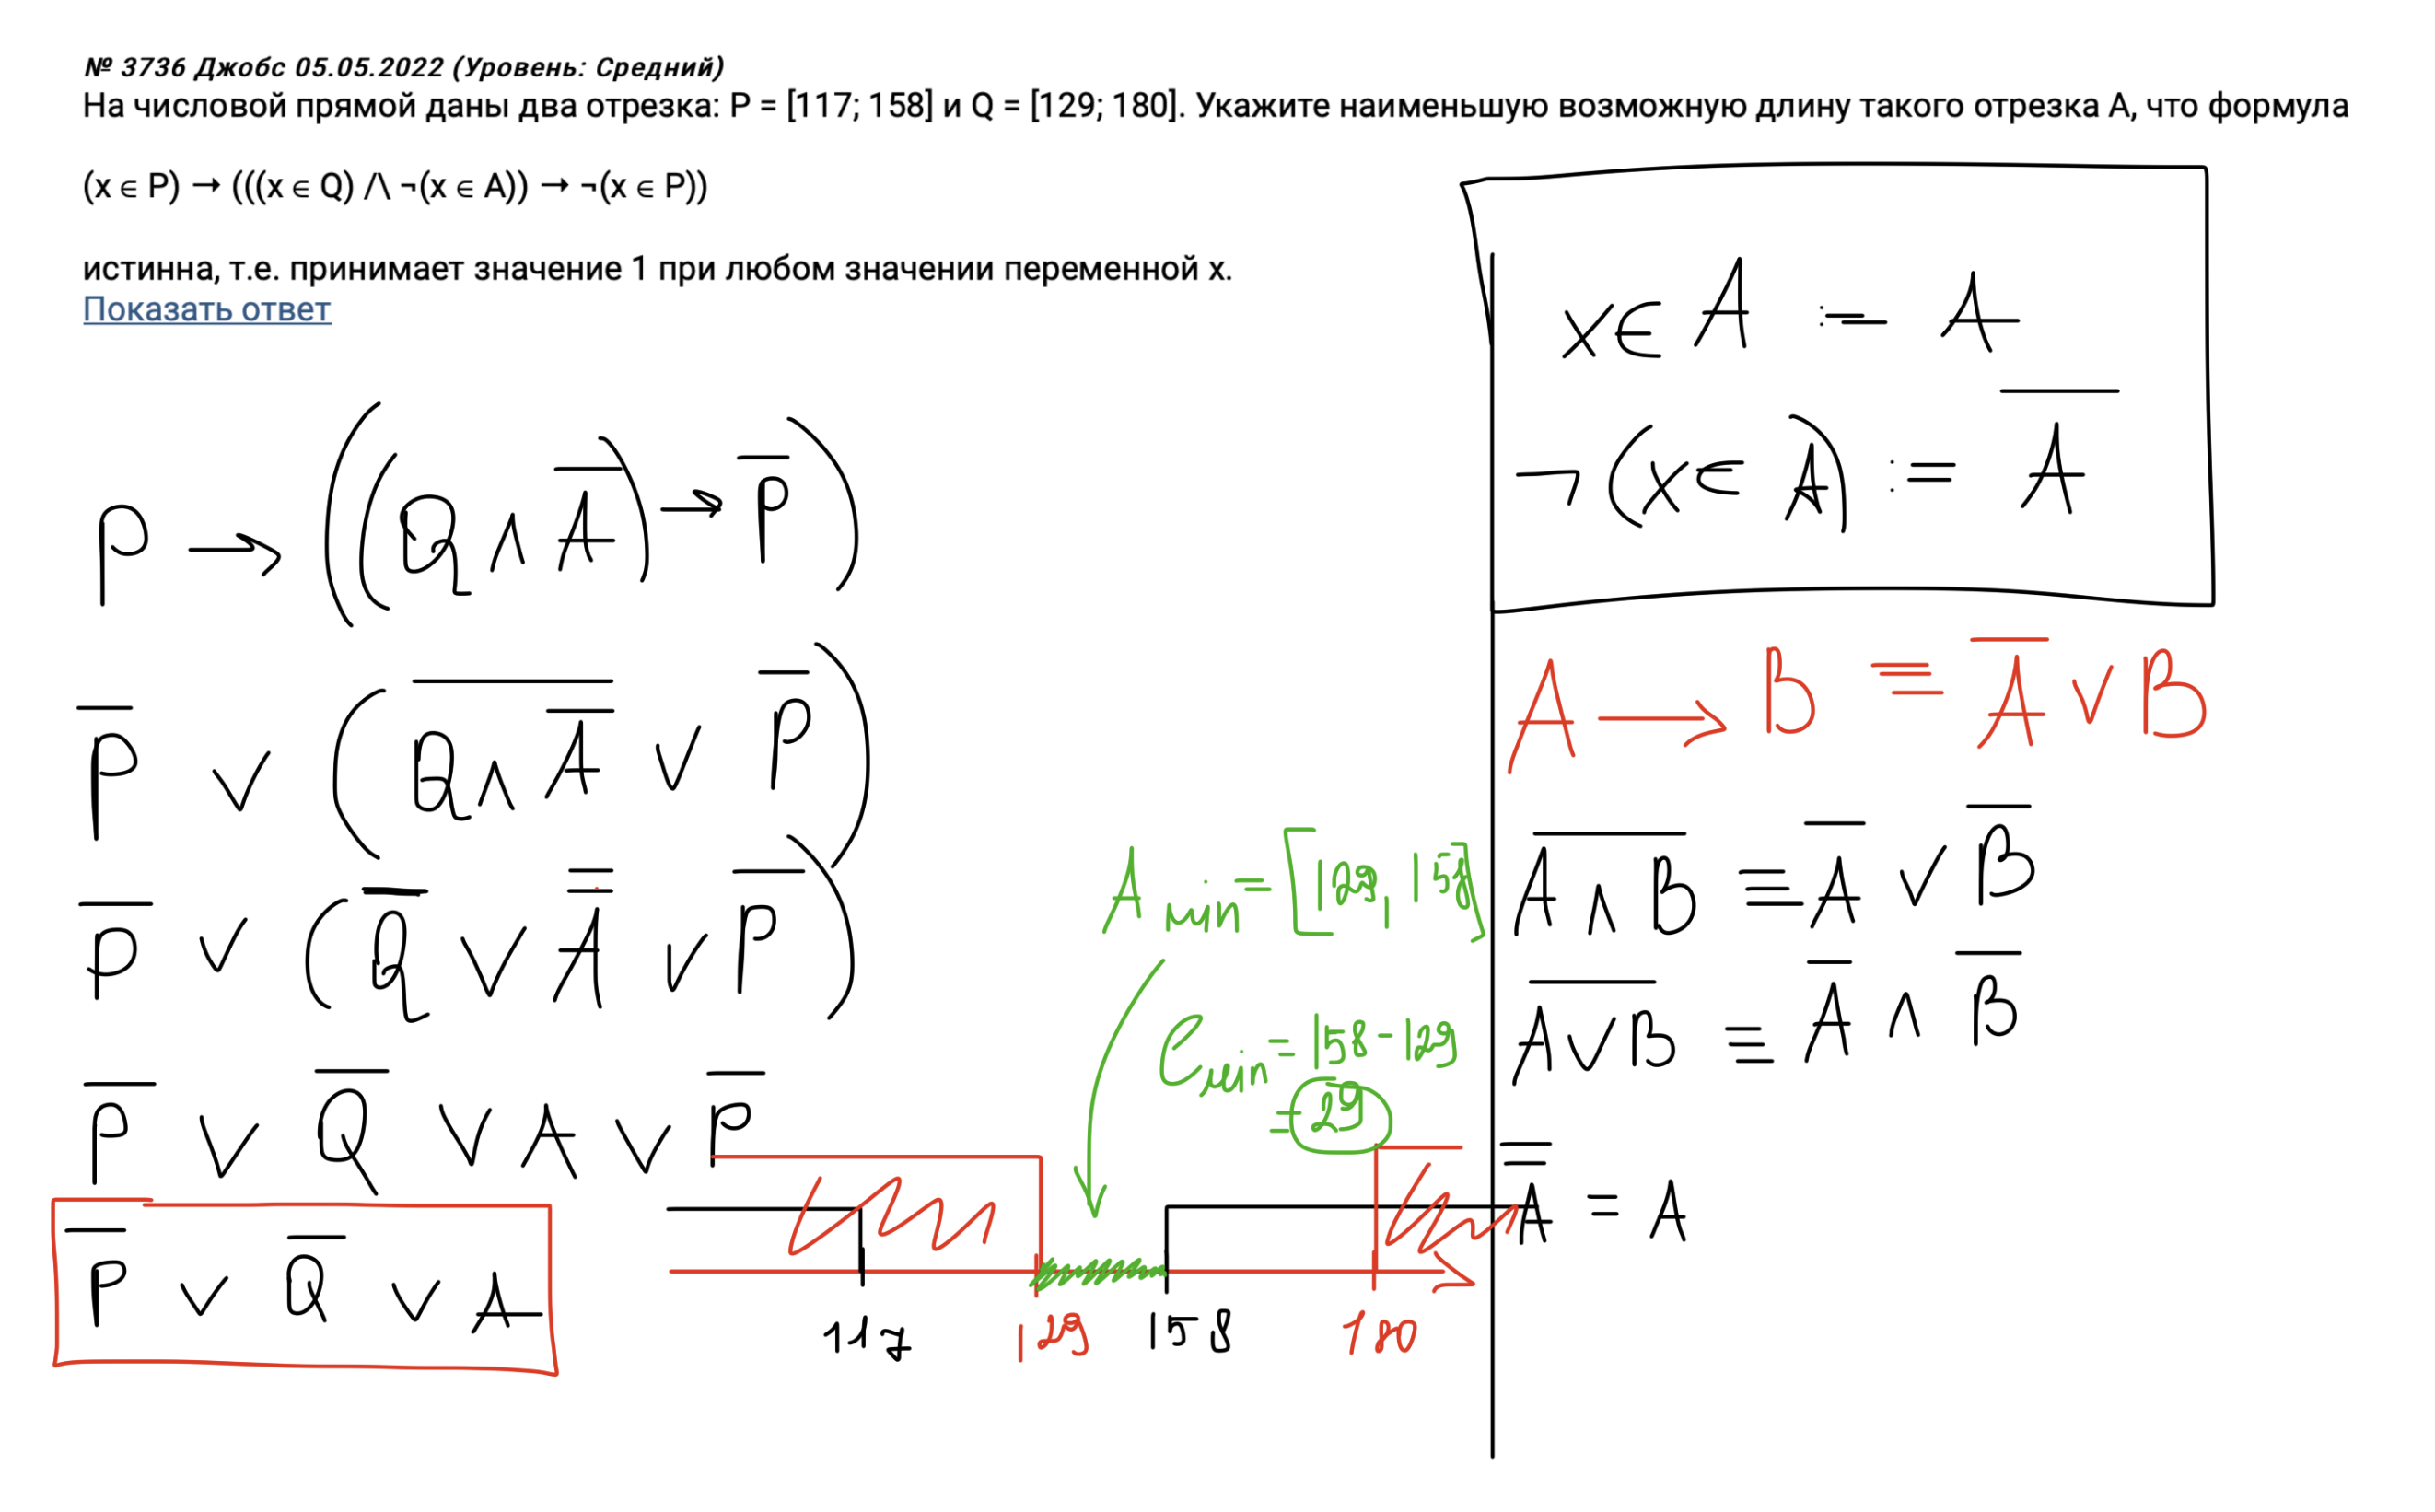 № 3736 Джобс 05.05.2022 (Уровень: Средний)
На числовой прямой даны два отрезка: P = [117; 158] и Q = [129; 180]. Укажите наименьшую возможную длину такого отрезка A, что формула
(x ∈ P) → (((x ∈ Q) /\ ¬(x ∈ A)) → ¬(x ∈ P))
истинна, т.е. принимает значение 1 при любом значении переменной x.
Показать ответ
P → ((Q ∧ A̅) → P̅)
P̅ ∨ (\overline{Q ∧ A̅} ∨ P̅)
P̅ ∨ (Q̅ ∨ A̿ ∨ P̅)
P̅ ∨ Q̅ ∨ A ∨ P̅
P̅ ∨ Q̅ ∨ A
A min = [129, 158]
ℓ min = 158 - 129
= 29
117 129 158 180
x ∈ A := A
¬(x ∈ A) := A̅
A → B ≡ A̅ ∨ B
\overline{A ∧ B} ≡ A̅ ∨ B̅
\overline{A ∨ B} ≡ A̅ ∧ B̅
A̿ = A